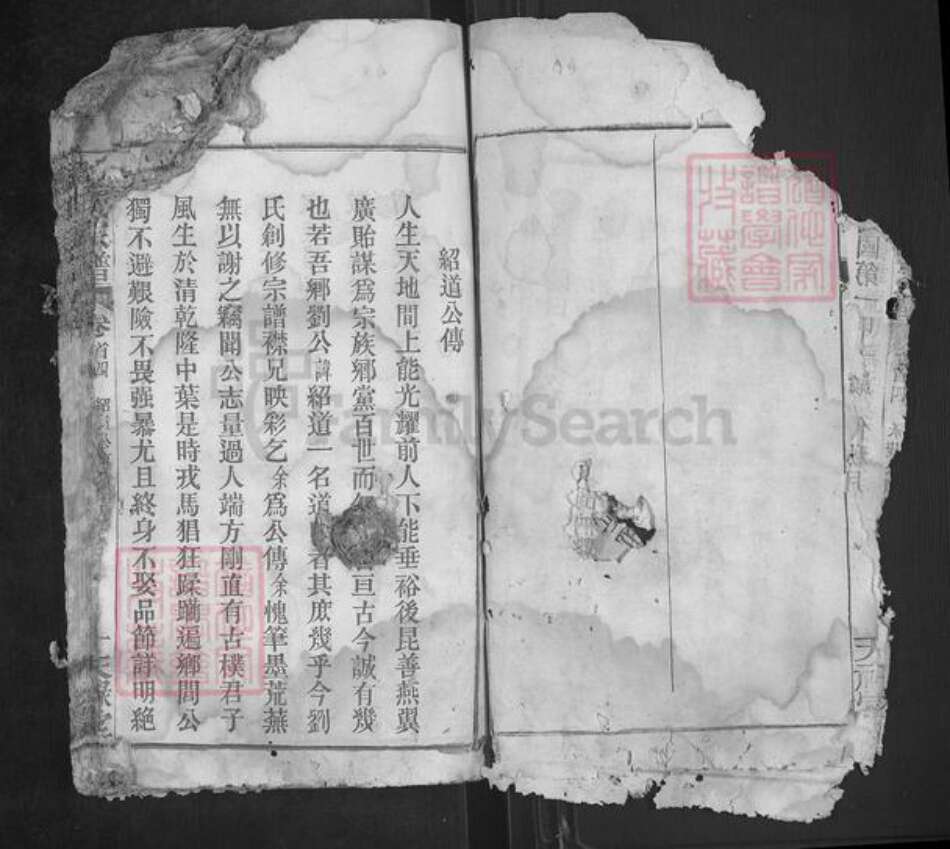 紹道公傳
人生天地間上能光耀前人下能垂裕後昆善燕翼
廣貽謀爲宗族鄉黨百世而 亘古今誠有幾
也若吾鄉劉公諱紹道一名道 者其庶幾乎今劉
氏創修宗譜襟兄映彩乞余爲公傳余愧筆墨荒蕪
無以謝之竊聞公志量過人端方剛直有古樸君子
風生於清乾隆中葉是時戎馬猖狂蹂躪遍鄉間公
獨不避艱險不畏强暴尤且終身不娶品節詳明絶
譜 卷首四
FamilySearch
譜學會
收藏